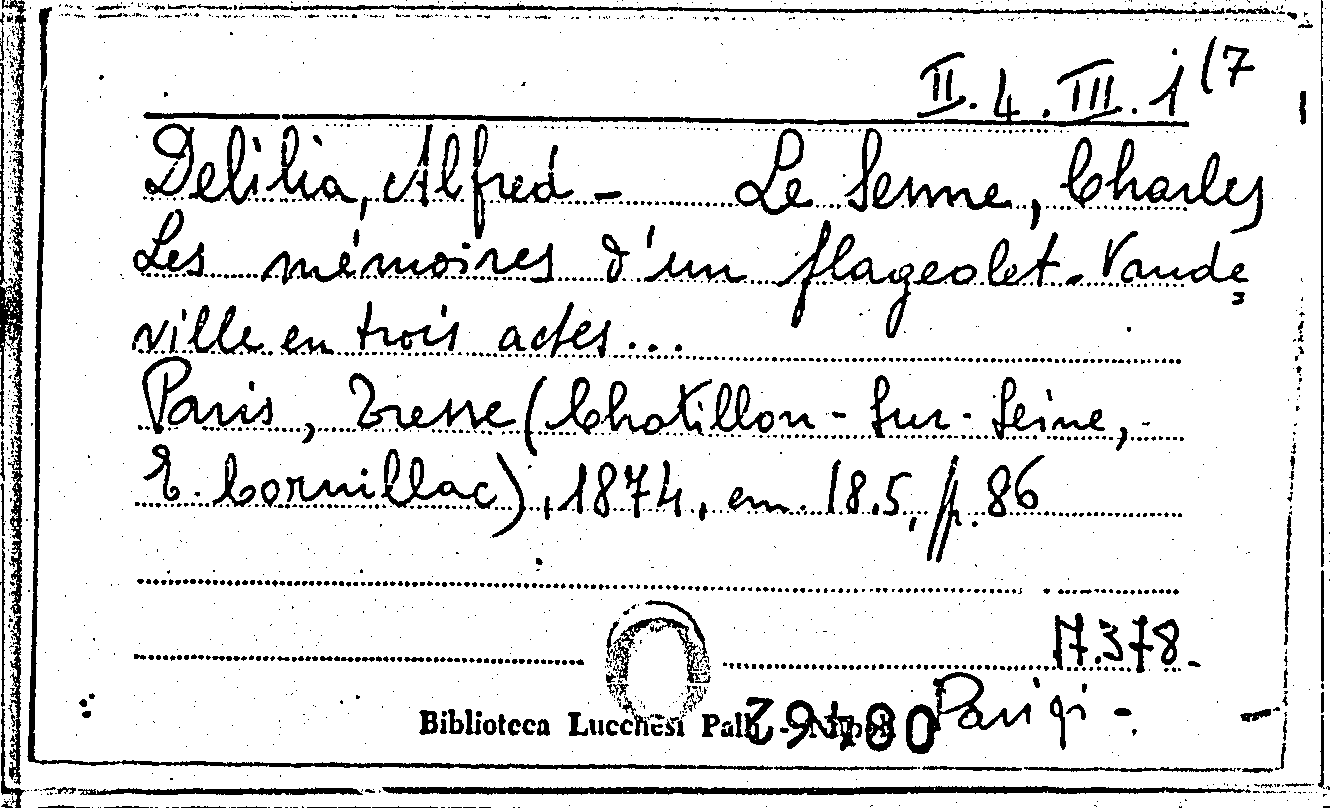 II. 4. III. 1 (7
Delilia, Alfred - Le Senne, Charles
Les mémoires d'un flageolet. Vaude=
ville en trois actes...
Paris, Tresse (Chatillon-Sur-Seine,
E. Cornillac), 1874, cm. 18.5, pp. 86
17.378.
Parigi -
Biblioteca Lucchesi Palli - Napoli